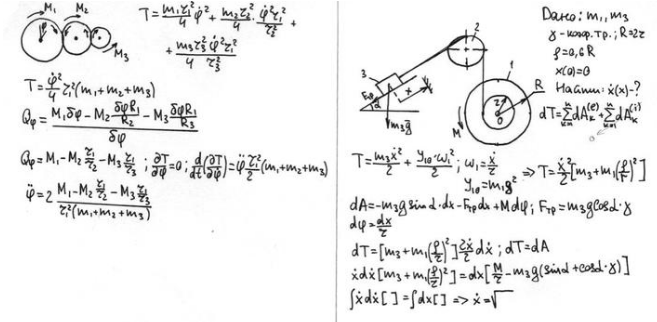 M₁ M₂
φ
M₃
T = m₁r₁²/4 φ̇² + m₂r₂²/4 · φ̇²r₁²/r₂² +
+ m₃r₃²/4 φ̇²r₁²/r₃²
T = φ̇²/4 r₁²(m₁+m₂+m₃)
Qφ = (M₁δφ - M₂ δφR₁/R₂ - M₃ δφR₁/R₃)/δφ
Qφ = M₁ - M₂ r₁/r₂ - M₃ r₁/r₃ ; ∂T/∂φ = 0 ; d/dt(∂T/∂φ̇) = φ̈ r₁²/2 (m₁+m₂+m₃)
φ̈ = 2 (M₁ - M₂ r₁/r₂ - M₃ r₁/r₃)/(r₁²(m₁+m₂+m₃))
2
3
1
Fтр
x
α
m₃g
M
r
R
O
Дано: m₁, m₃
γ - коэф. тр.; R=2r
ρ=0,6R
x(0)=0
Найти: ẋ(x)-?
dT = Σ dAₖ⁽ᵉ⁾ + Σ dAₖ⁽ⁱ⁾
T = m₃ẋ²/2 + y₁₀·ω₁²/2 ; ω₁ = ẋ/r
y₁₀ = m₁ρ² => T = ẋ²/2 [m₃+m₁(ρ/r)²]
dA = -m₃g sinα·dx - Fтрdx + Mdφ; Fтр = m₃g cosα·γ
dφ = dx/r
dT = [m₃+m₁(ρ/r)²] 2ẋ/2 dẋ ; dT = dA
ẋdẋ[m₃+m₁(ρ/r)²] = dx[M/r - m₃g(sinα+cosα·γ)]
∫ẋdẋ[ ] = ∫dx[ ] => ẋ = √